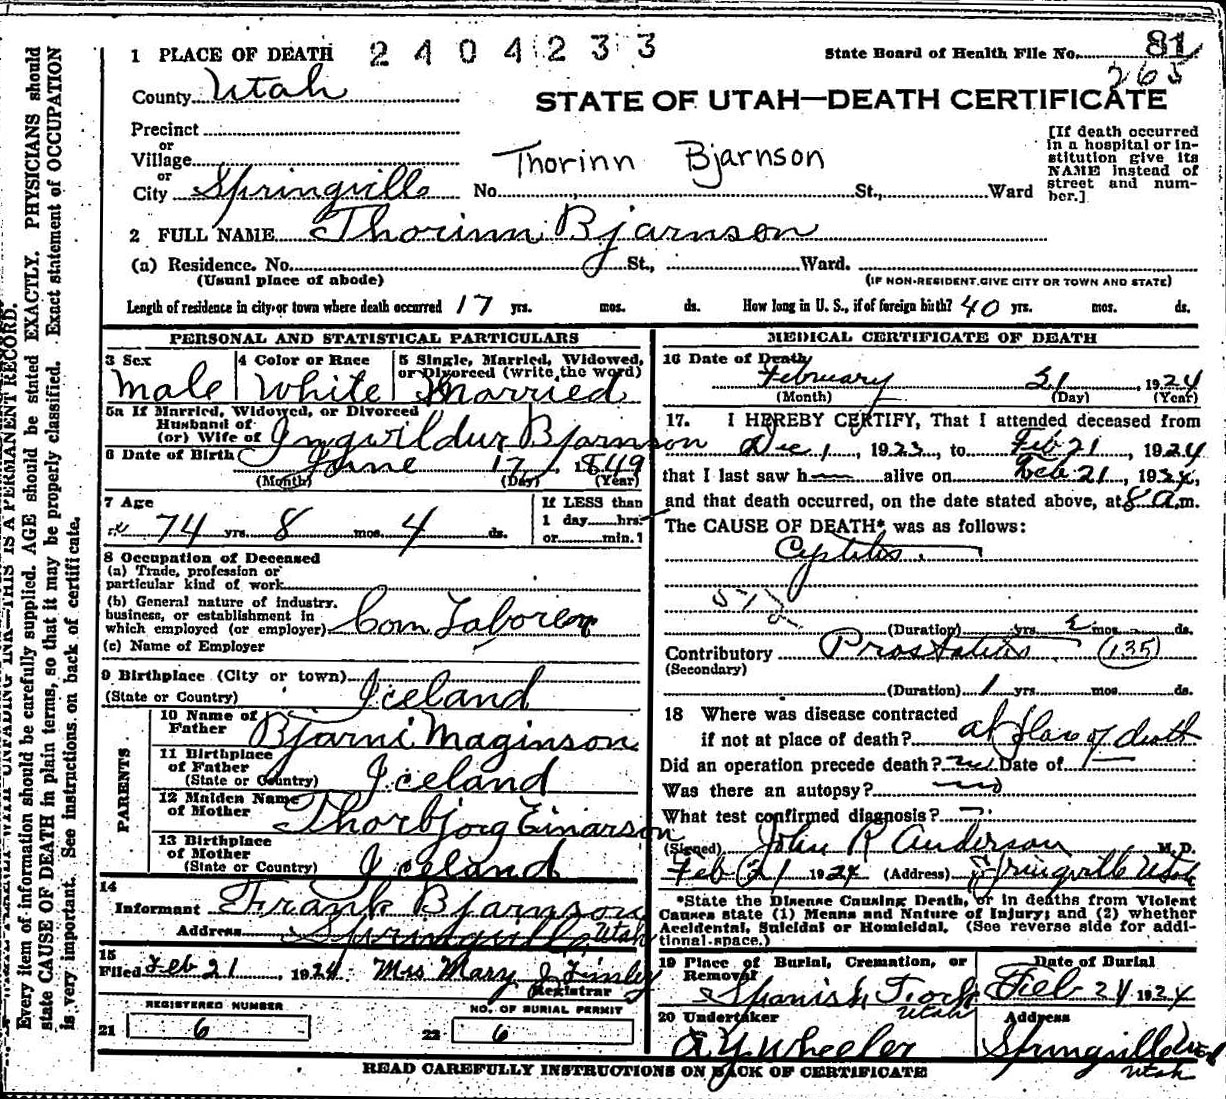 1 PLACE OF DEATH 2404233
State Board of Health File No. 81
265
County Utah
STATE OF UTAH—DEATH CERTIFICATE
Precinct
or
Village
or
City Springville
Thorinn Bjarnson
No. St., Ward
[If death occurred
in a hospital or in-
stitution give its
NAME instead of
street and num-
ber.]
2 FULL NAME Thorinn Bjarnson
(a) Residence. No. St., Ward.
(Usual place of abode) (IF NON-RESIDENT, GIVE CITY OR TOWN AND STATE)
Length of residence in city or town where death occurred 17 yrs. mos. ds. How long in U. S., if of foreign birth? 40 yrs. mos. ds.
PERSONAL AND STATISTICAL PARTICULARS
3 Sex
Male
4 Color or Race
White
5 Single, Married, Widowed,
or Divorced (write the word)
Married
5a If Married, Widowed, or Divorced
Husband of
(or) Wife of Ingwildur Bjarnson
6 Date of Birth June 17, 1849
(Month) (Day) (Year)
7 Age
74 yrs. 8 mos. 4 ds.
If LESS than
1 day hrs.
or min.
8 Occupation of Deceased
(a) Trade, profession or
particular kind of work
(b) General nature of industry,
business, or establishment in
which employed (or employer) Com Laborer
(c) Name of Employer
9 Birthplace (City or town)
(State or Country) Iceland
PARENTS
10 Name of
Father Bjarni Maginson
11 Birthplace
of Father
(State or Country) Iceland
12 Maiden Name
of Mother Thorbjorg Einarson
13 Birthplace
of Mother
(State or Country) Iceland
14
Informant Frank Bjarnson
Address Springville Utah
15
Filed Feb 21, 1924. Mrs Mary J Finley
Registrar
REGISTERED NUMBER
21 6
NO. OF BURIAL PERMIT
22 6
MEDICAL CERTIFICATE OF DEATH
16 Date of Death
February 21, 1924
(Month) (Day) (Year)
17. I HEREBY CERTIFY, That I attended deceased from
Dec 1, 1923, to Feb 21, 1924
that I last saw h alive on Feb 21, 1924,
and that death occurred, on the date stated above, at 8 a.m.
The CAUSE OF DEATH* was as follows:
Cystitis
(Duration) yrs. mos. ds.
Contributory Prostatitis (135)
(Secondary)
(Duration) 1 yrs. mos. ds.
18 Where was disease contracted
if not at place of death? at place of death
Did an operation precede death? no Date of
Was there an autopsy? no
What test confirmed diagnosis?
(Signed) John R Anderson M. D.
Feb 21 1924 (Address) Springville Utah
*State the Disease Causing Death, or in deaths from Violent
Causes state (1) Means and Nature of Injury; and (2) whether
Accidental, Suicidal or Homicidal. (See reverse side for addi-
tional space.)
19 Place of Burial, Cremation, or
Removal
Spanish Fork
Utah
Date of Burial
Feb 24 1924
20 Undertaker
A Y Wheeler
Address
Springville
Utah
READ CAREFULLY INSTRUCTIONS ON BACK OF CERTIFICATE
THIS IS A PERMANENT RECORD.
Every item of information should be carefully supplied. AGE should be stated EXACTLY. PHYSICIANS should
state CAUSE OF DEATH in plain terms, so that it may be properly classified. Exact statement of OCCUPATION
is very important. See instructions on back of certificate.